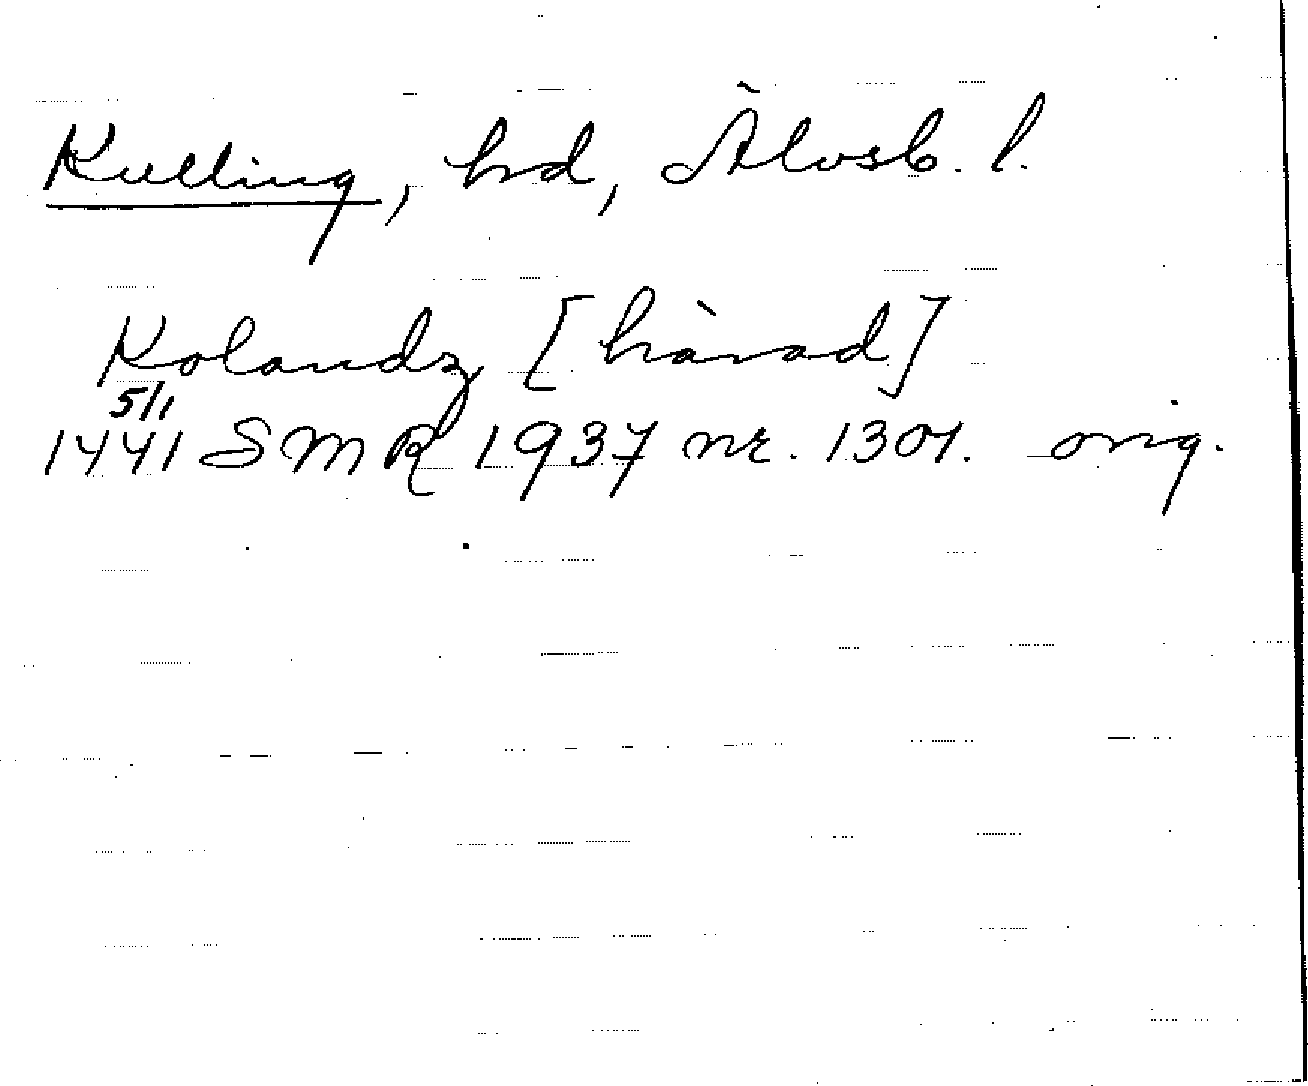 Kulling, hd, Älvsb. l.
Kolandz [härad]
5/1
1441 SMR 1937 nr. 1301. orig.